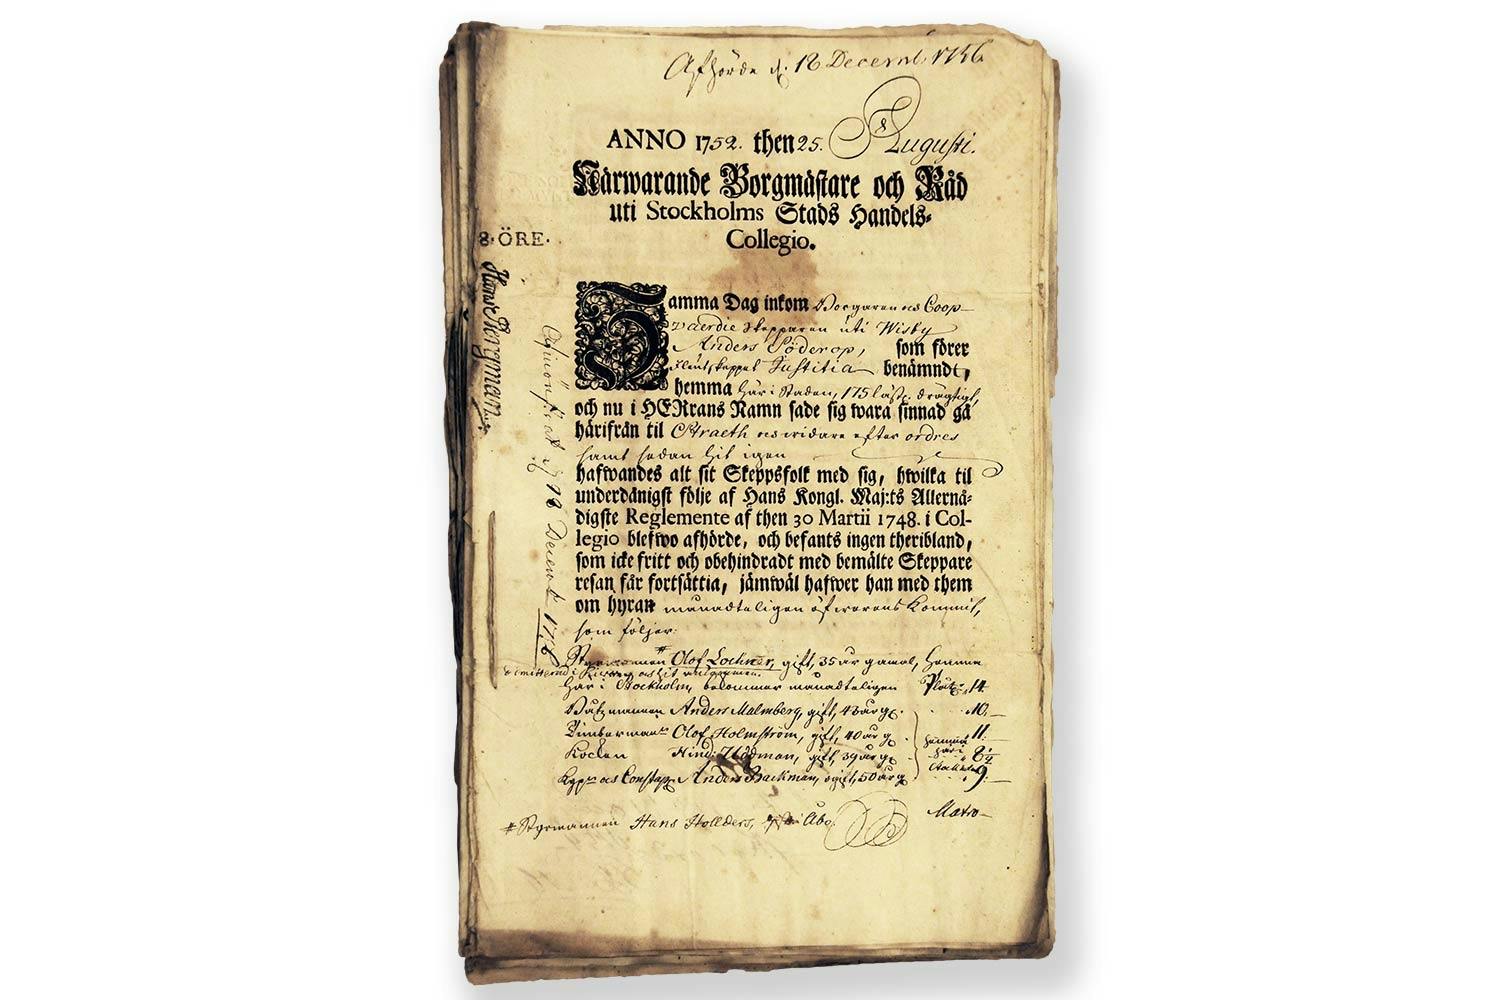 Afhörde d. 18 Decemb. 1756
ANNO 1752. then 25. Augusti.
Närwarande Borgmästare och Råd
uti Stockholms Stads Handels-
Collegio.
8. ÖRE.
Samma Dag inkom Borgaren och Coop-
vaerdie Skepparen uti Wisby
Anders Söderop, som förer
Fleutskeppet Justitia benämndt,
hemma här i Staden, 175 läst. drägtigt,
och nu i HERrans Namn sade sig wara sinnad gå
härifrån til Straeth och widare efter ordres
samt sedan hit igen
hafwandes alt sit Skeppsfolk med sig, hwilka til
underdånigst följe af Hans Kongl. Maj:ts Allernå-
digste Reglemente af then 30 Martii 1748. i Col-
legio blefwo afhörde, och befants ingen theribland,
som icke fritt och obehindradt med bemälte Skeppare
resan får fortsättia, jämwäl hafwer han med them
om hyran månadteligen öfwerens kommit,
som följer:
Styrmannen Olof Lochner, gift, 35 år gamal, hemma
här i Stockholm, bekommer månadteligen Plåt: 14
Båtzmannen Anders Malmberg, gift, 43 år g. 10.
Timberman Olof Holmström, gift, 40 år g 11.
Kocken Hind: gift, 39 år g. 8 1/2
Anders Backman, ogift, 50 år g 9.
hemma här i Stockholm
# Styrmannen Hans Hollders, Åbo.
Matro-